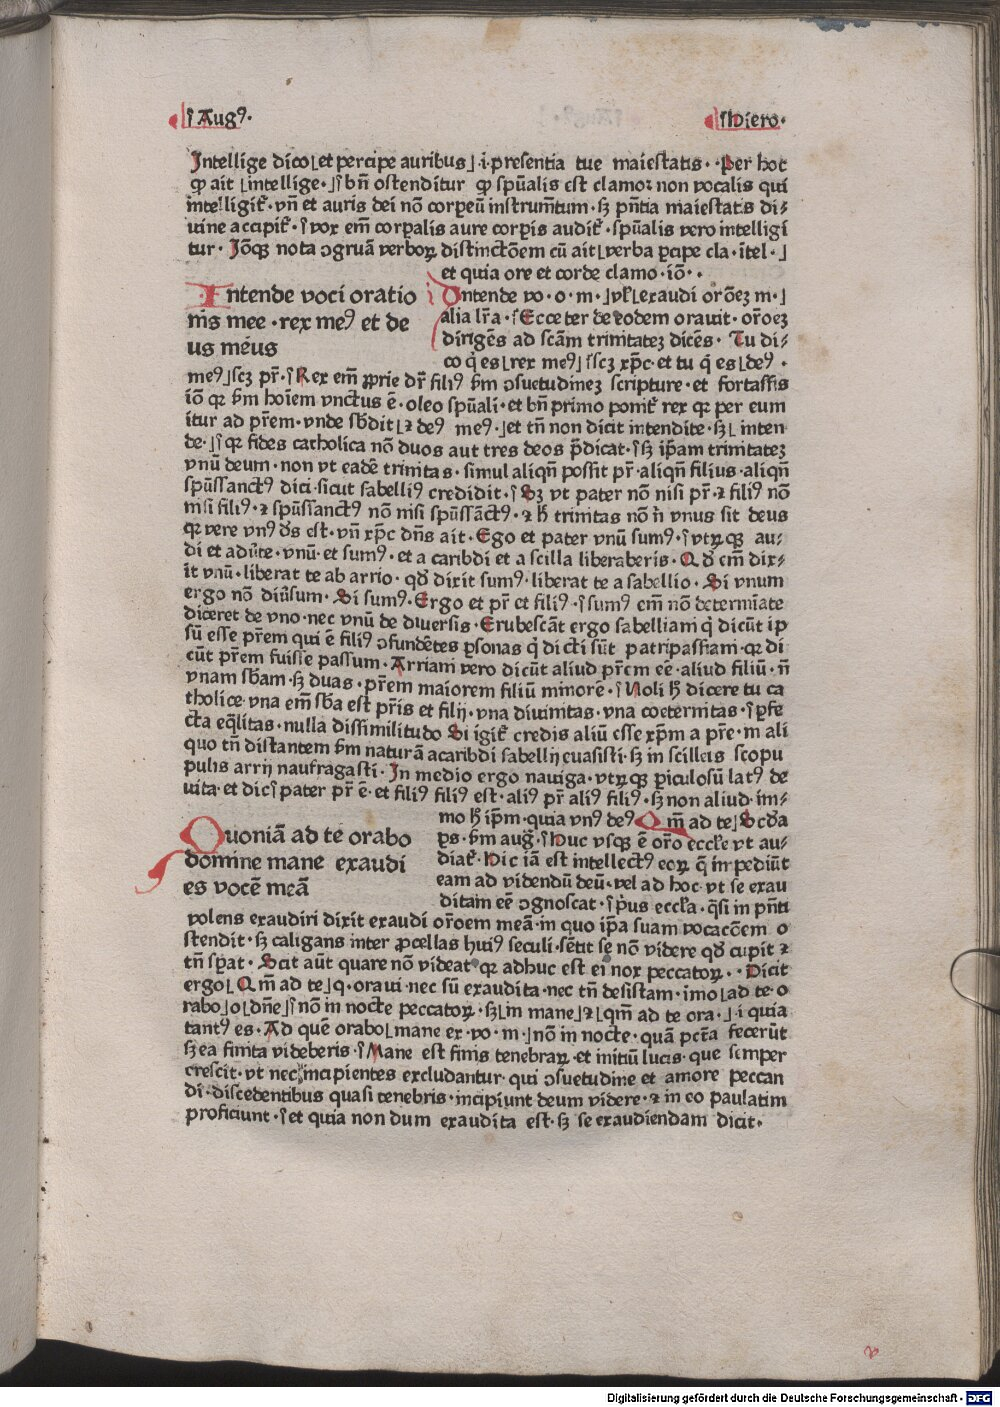 ⸿ Augꝰ.
⸿ Hiero.
Intellige dico⌊et percipe auribus⌋.i.presentia tue maiestatis. Per hoc
ꝙ ait ⌊intellige.⌋⸿ bn̄ ostenditur ꝙ spūalis est clamor non vocalis qui
intelligit᷑. vn̄ et auris dei nō corpeū instrum̄tum.sꝫ pn̄tia maiestatis di⸗
uine accipit᷑.⸿ vox em̄ corpalis aure corpis audit᷑. spūalis vero intelligi
tur. Iōqꝫ nota ꝯgruā verboꝝ distinctōem cū ait⌊verba pcipe cla.itel.⌋
et quia ore et corde clamo.iō..
Intende voci oratio
nis mee .rex meꝰ et de
us meus
Intende vo.o.m.⌋ vl᷑⌊exaudi orōeꝫ m.⌋
alia lr̄a.⸿ Ecce ter de eodem orauit.or̄oeꝫ
dirigēs ad scām trinitateꝫ dicēs. Tu di⸗
co q̇ es⌊rex meꝰ⌋⸿scꝫ xp̄c.et tu q̇ es⌊deꝰ.
meꝰ⌋scꝫ pr̄.⸿ Rex em̄ ꝓprie dr̄ filiꝰ ẜm ꝯsuetudineꝫ scripture.et fortassis
iō qꝛ ẜm hoīem vnctus ē.oleo spūali.et bn̄ primo ponit᷑ rex qꝛ per eum
itur ad pr̄em.vnde sb̄dit⌊⁊ deꝰ meꝰ.⌋et tn̄ non dicit intendite.sꝫ⌊inten
de.⌋⸿ qꝛ fides catholica nō duos aut tres deos p̄dicat.⸿ sꝫ ip̄am trinitateꝫ
vnū deum.non vt eadē trinitas.simul aliqn̄ possit pr̄.aliqn̄ filius.aliqn̄
spūssanctꝰ dici.sicut sabelliꝰ credidit.⸿ Sꝫ vt pater nō nisi pr̄.⁊ filiꝰ nō
nisi filiꝰ.⁊ spūssanctꝰ nō nisi spūssāctꝰ.⁊ h̄ trinitas nō n̄ vnus sit deus
qꝛ vere vnꝰ ds̄ est.vn̄ xp̄c dn̄s ait.Ego et pater vnū sumꝰ.⸿ vtꝝqꝫ au⸗
di et adūte.vnū.et sumꝰ.et a caribdi et a scilla liberaberis.Qd̄ em̄ dix⸗
it vnū.liberat te ab arrio.qd̄ dixit sumꝰ.liberat te a sabellio.Si vnum
ergo nō diūsum.Si sumꝰ.Ergo et pr̄ et filiꝰ.⸿ sumꝰ em̄ nō determīate
diceret de vno.nec vnū de diuersis.Erubescāt ergo sabelliani q̇ dicūt ip
sū esse pr̄em qui ē filiꝰ ꝯfundētes psonas q̇ dicti sūt patripassiani.qꝛ di
cūt pr̄em fuisse passum.Arriani vero dicūt aliud pr̄em eē.aliud filiū.n̄
vnam sb̄am.sꝫ duas.pr̄em maiorem filiū minorē.⸿ Noli h̄ dicere tu ca
tholice.vna em̄ sb̄a est pr̄is et filij.vna diuinitas.vna coeternitas.⸿ pfe
cta eq̄litas.nulla dissimilitudo Si igit᷑ credis aliū esse xp̄m a pr̄e.m ali
quo tn̄ distantem ẜm naturā acaribdi sabellij euasisti.sꝫ in scilleis scopu
pulis arrij naufragasti.In medio ergo nauiga.vtꝝqꝫ piculosū latꝰ de
uita.et dic⸿ pater pr̄ ē.et filiꝰ filiꝰ est.aliꝰ pr̄ aliꝰ filiꝰ.sꝫ non aliud.im⸗
mo h̄ ip̄m.quia vnꝰ deꝰ
Quoniā ad te orabo
domine mane exaudi
es vocē meā
Qm̄ ad te⌋ Scd̄a
ps.ẜm aug̃.⸿ Huc vsqꝫ ē or̄o eccl̄e vt au⸗
diat᷑.Hic iā est intellectꝰ eoꝝ q̄ inpediūt
eam ad videndū deū.vel ad hoc vt se exau
ditam eē ꝯgnoscat.⸿ p̄us eccl̄a.q̄si in pn̄ti
volens exaudiri dixit exaudi or̄oem meā.in quo ip̄a suam vocacōem o
stendit.sꝫ caligans inter ꝓcellas huiꝰ seculi.sētit se nō videre qd̄ cupit ⁊
tn̄ sp̄at.Scit aūt quare nō videat qꝛ adhuc est ei nox peccatoꝝ.. Dicit
ergo⌊Qm̄ ad te⌋q.oraui.nec sū exaudita.nec tn̄ desistam.imo⌊ad te.o
rabo⌋o⌊dn̄e⌋⸿ nō in nocte peccatoꝝ.sꝫ⌊in mane⌋⁊⌊qm̄ ad te ora.⌋.i quia
tantꝰ es.Ad quē orabo⌊mane ex.vo.m⌋nō in nocte.quā pct̄a fecerūt
sꝫ ea finita videberis.⸿ Mane est finis tenebraꝝ.et initiū lucis.que semper
crescit.vt nec incipientes excludantur.qui ꝯsuetudine et amore peccan
di.discedentibus quasi tenebris.incipiunt deum videre.⁊ in eo paulatim
proficiunt.⸿ et quia non dum exaudita est.sꝫ se exaudiendam dicit.
Digitalisierung gefördert durch die Deutsche Forschungsgemeinschaft - DFG